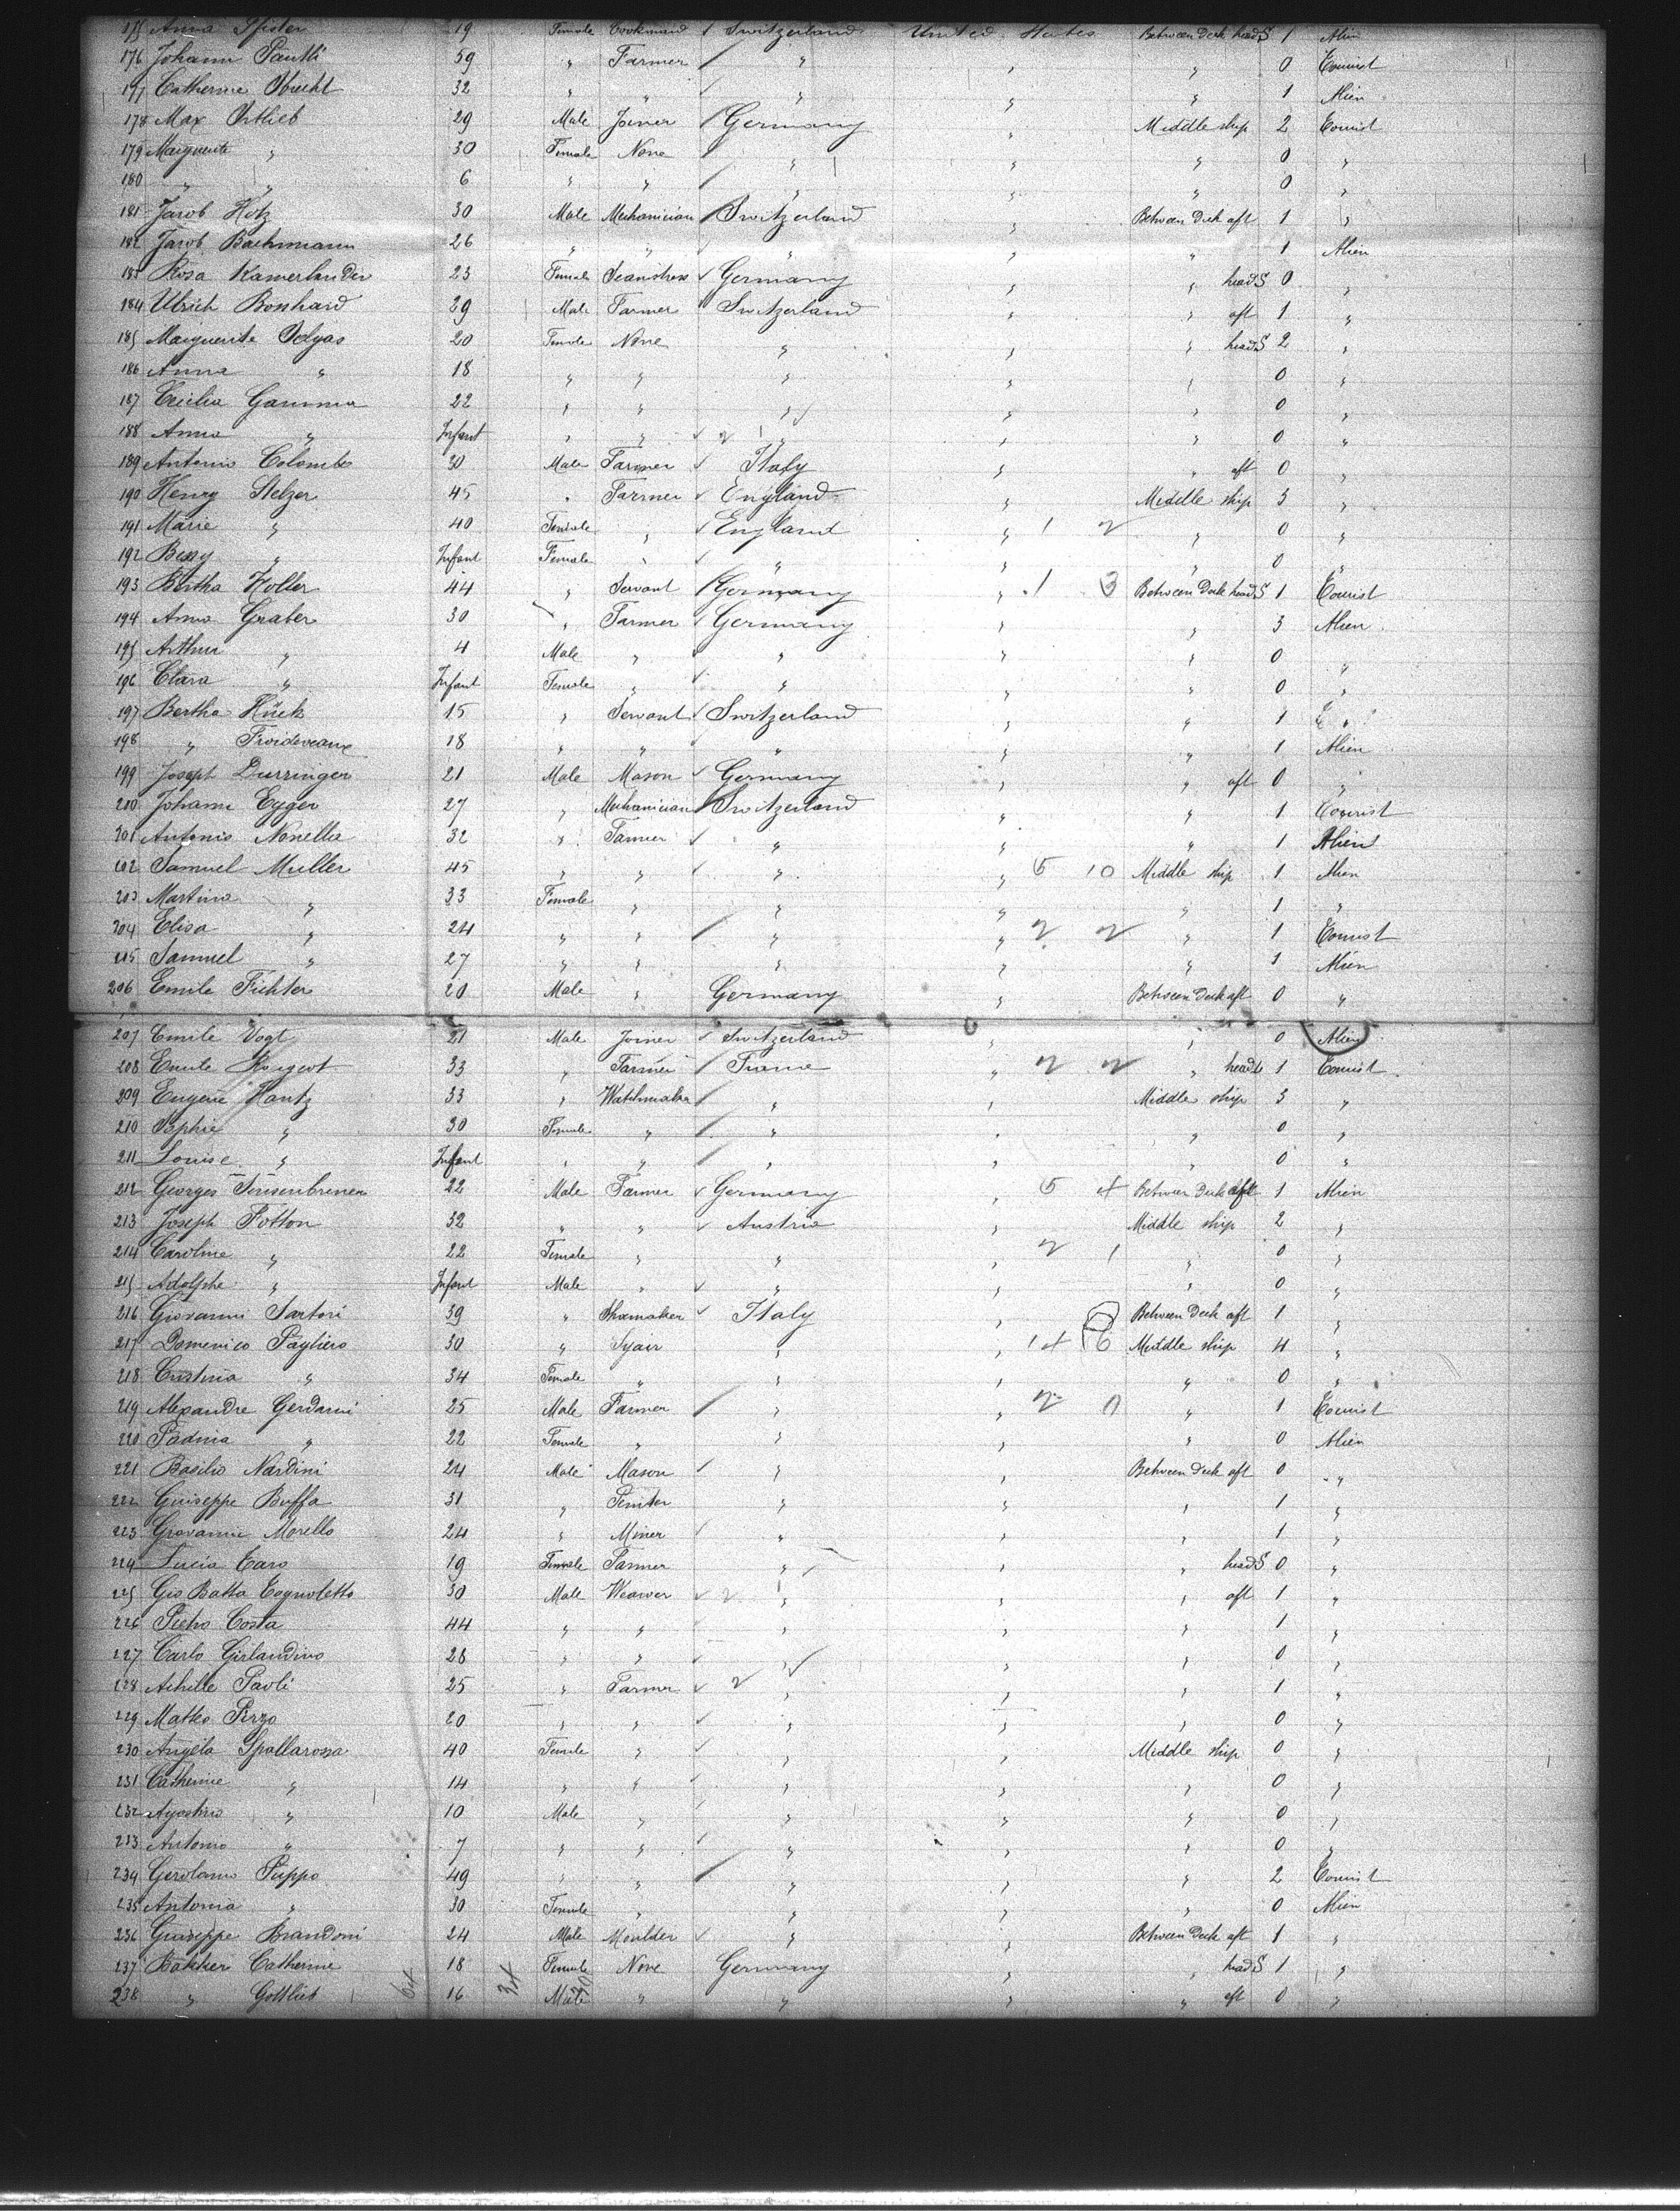 175 Anna Pfister 19 Female Cookmaid Switzerland United States Between Deck headS 1 Alien
176 Johann Pauthi 59 " Farmer " " " 0 Tourist
177 Catherine Obrecht 32 " " " " " 1 Alien
178 Max Ortlieb 29 Male Joiner Germany " Middle ship 2 Tourist
179 Marguerite " 30 Female None " " " 0 "
180 " " 6 " " " " " 0 "
181 Jacob Hotz 30 Male Mechanician Switzerland " Between Deck aft 1 "
182 Jacob Bachmann 26 " " " " " 1 Alien
183 Rosa Kamerlander 23 Female Seamstress Germany " " headS 0 "
184 Ulrich Bonhard 29 Male Farmer Switzerland " " aft 1 "
185 Marguerite Delyas 20 Female None " " " headS 2 "
186 Anna " 18 " " " " " 0 "
187 Cecilia Gamma 22 " " " " " 0 "
188 Anna " Infant " " " " " 0 "
189 Antonio Colombo 30 Male Farmer Italy " " aft 0 "
190 Henry Stelzer 45 " Farmer England " Middle ship 3 "
191 Marie " 40 Female " England " 1 2 " 0 "
192 Bessy " Infant Female " " " " 0 "
193 Bertha Holler 44 " Servant Germany " 1 3 Between Deck headS 1 Tourist
194 Anna Graber 30 " Farmer Germany " " 3 Alien
195 Arthur " 4 Male " " " " 0 "
196 Clara " Infant Female " " " " 0 "
197 Bertha Hück 15 " Servant Switzerland " " 1
198 " Froideveaux 18 " " " " " 1 Alien
199 Joseph Durringer 21 Male Mason Germany " " aft 0 "
200 Johann Egger 27 " Mechanician Switzerland " " 1 Tourist
201 Antonio Nonella 32 " Farmer " " " 1 Alien
202 Samuel Muller 45 " " " " 5 10 Middle ship 1 Alien
203 Martina " 33 Female " " " " 1 "
204 Elisa " 24 " " " " 2 2 " 1 Tourist
205 Samuel " 27 " " " " " 1 Alien
206 Emile Fichter 20 Male " Germany " Between Deck aft 0 "
207 Emile Vogt 21 Male Joiner Switzerland " " 0 Alien
208 Emile Rougeot 33 " Farmer France " 2 2 " headS 1 Tourist
209 Eugene Hantz 33 " Watchmaker " " Middle ship 3 "
210 Sophie " 30 Female " " " " 0 "
211 Louise " Infant " " " " " 0 "
212 Georges Sensenbrener 22 Male Farmer Germany " 5 4 Between Deck aft 1 Alien
213 Joseph Potton 32 " " Austria " Middle ship 2 "
214 Caroline " 22 Female " " " 2 1 " 0 "
215 Adolphe " Infant Male " " " " 0 "
216 Giovanni Sartori 39 " Shoemaker Italy " Between Deck aft 1 "
217 Domenico Pagliero 30 " " " 14 16 Middle ship 4 "
218 Cristina " 34 Female " " " " 0 "
219 Alexandre Gerdami 25 Male Farmer " " 2 0 " 1 Tourist
220 Padnia " 22 Female " " " " 0 Alien
221 Basilio Nardini 24 Male Mason " " Between Deck aft 0 "
222 Guiseppe Buffa 31 " " " " 1 "
223 Giovanni Morello 24 " Miner " " " 1 "
224 Lucia Caro 19 Female Farmer " " " headS 0 "
225 Gio Batta Cognoletto 30 Male Weawer " " " aft 1 "
226 Pietro Costa 44 " " " " " 1 "
227 Carlo Girlandino 28 " " " " " 0 "
228 Achille Paoli 25 " Farmer " " " 1 "
229 Matteo Pirzo 20 " " " " " 0 "
230 Angela Spallarossa 40 Female " " " Middle ship 0 "
231 Catherine " 14 " " " " " 0 "
232 Agostino " 10 Male " " " " 0 "
233 Antonio " 7 " " " " " 0 "
234 Gerolamo Puppo 49 " " " " " 2 Tourist
235 Antonia " 30 Female " " " " 0 Alien
236 Guiseppe Brandoni 24 Male Moulder " " Between Deck aft 1 "
237 Bakker Catherine 18 Female None Germany " " headS 1 "
238 " Gottlieb 16 Male " " " " aft 0 "